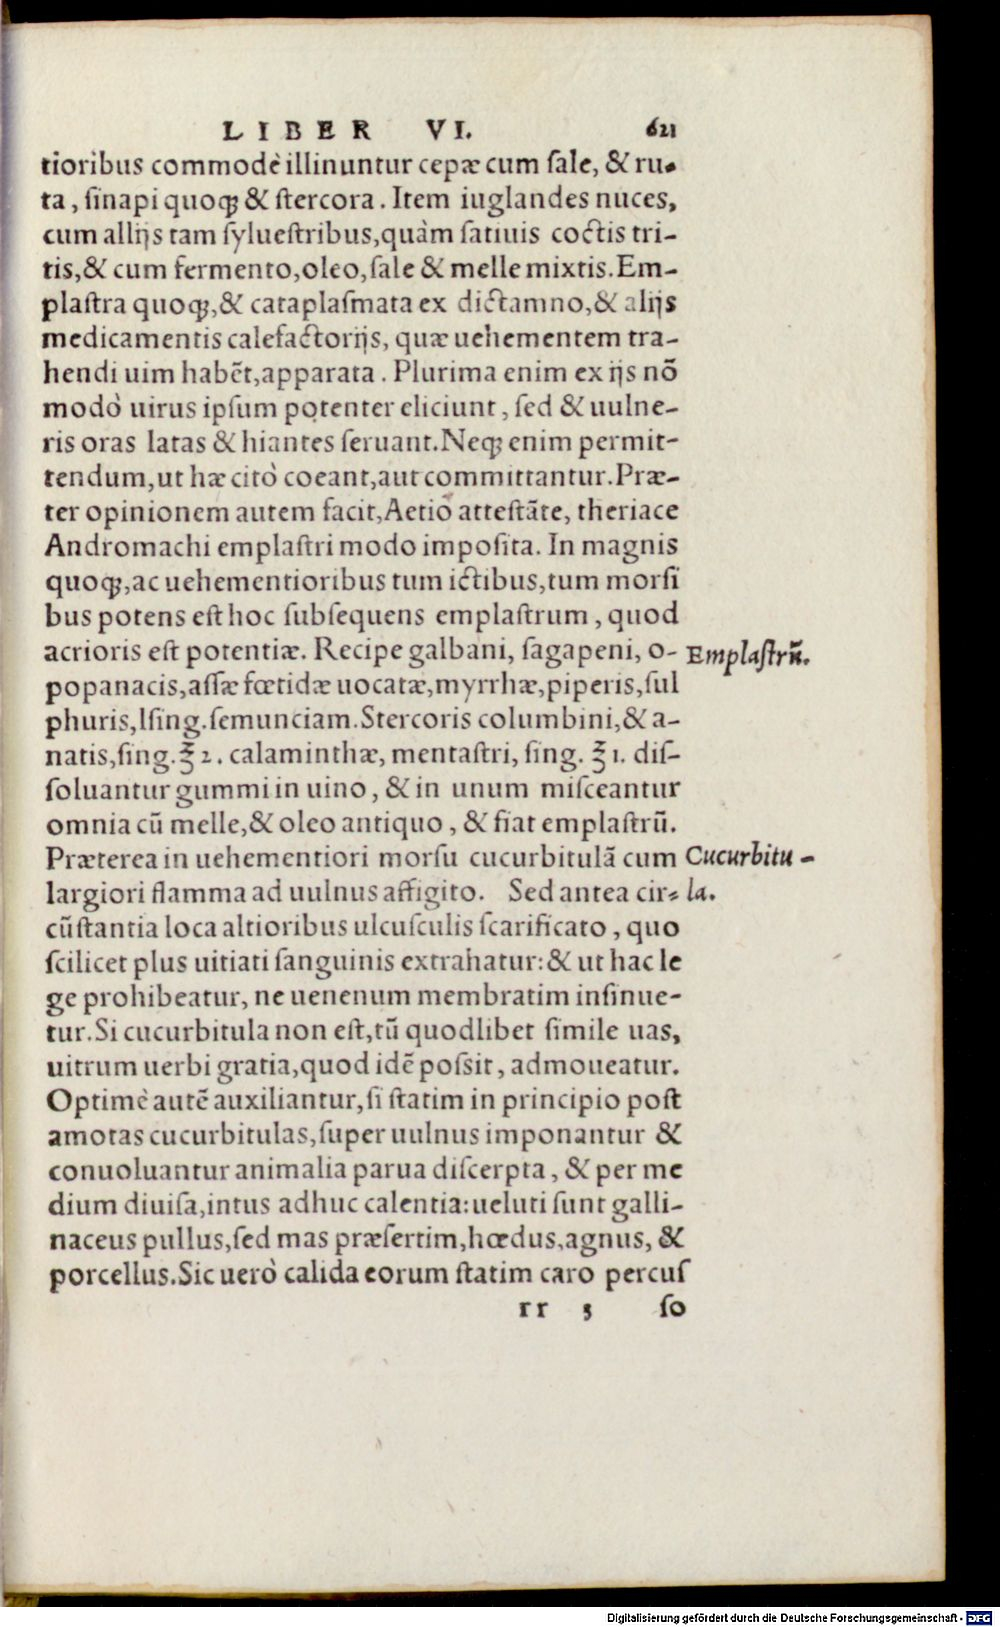 LIBER VI. 621
tioribus commodè illinuntur cepæ cum ſale, & ru-
ta, ſinapi quoqꝫ & ſtercora. Item iuglandes nuces,
cum allijs tam ſylueſtribus, quàm ſatiuis coctis tri-
tis, & cum fermento, oleo, ſale & melle mixtis. Em-
plaſtra quoqꝫ, & cataplaſmata ex dictamno, & alijs
medicamentis calefactorijs, quæ uehementem tra-
hendi uim habẽt, apparata. Plurima enim ex ijs nõ
modò uirus ipſum potenter eliciunt, ſed & uulne-
ris oras latas & hiantes ſeruant. Neqꝫ enim permit-
tendum, ut hæ citò coeant, aut committantur. Præ-
ter opinionem autem facit, Aetio atteſtãte, theriace
Andromachi emplaſtri modo impoſita. In magnis
quoqꝫ, ac uehementioribus tum ictibus, tum morſi
bus potens eſt hoc ſubſequens emplaſtrum, quod
acrioris eſt potentiæ. Recipe galbani, ſagapeni, o- Emplaſtrũ.
popanacis, aſſæ fœtidæ uocatæ, myrrhæ, piperis, ſul
phuris, lſing. ſemunciam. Stercoris columbini, & a-
natis, ſing. ℥ 2. calaminthæ, mentaſtri, ſing. ℥ 1. diſ-
ſoluantur gummi in uino, & in unum miſceantur
omnia cũ melle, & oleo antiquo, & fiat emplaſtrũ.
Præterea in uehementiori morſu cucurbitulã cum Cucurbitu-
largiori flamma ad uulnus affigito. Sed antea cir- la.
cũſtantia loca altioribus ulcuſculis ſcarificato, quo
ſcilicet plus uitiati ſanguinis extrahatur: & ut hac le
ge prohibeatur, ne uenenum membratim inſinue-
tur. Si cucurbitula non eſt, tũ quodlibet ſimile uas,
uitrum uerbi gratia, quod idẽ poſsit, admoueatur.
Optimè autẽ auxiliantur, ſi ſtatim in principio poſt
amotas cucurbitulas, ſuper uulnus imponantur &
conuoluantur animalia parua diſcerpta, & per me
dium diuiſa, intus adhuc calentia: ueluti ſunt galli-
naceus pullus, ſed mas præſertim, hœdus, agnus, &
porcellus. Sic uerò calida eorum ſtatim caro percuſ
rr 3 ſo
Digitalisierung gefördert durch die Deutsche Forschungsgemeinschaft - DFG